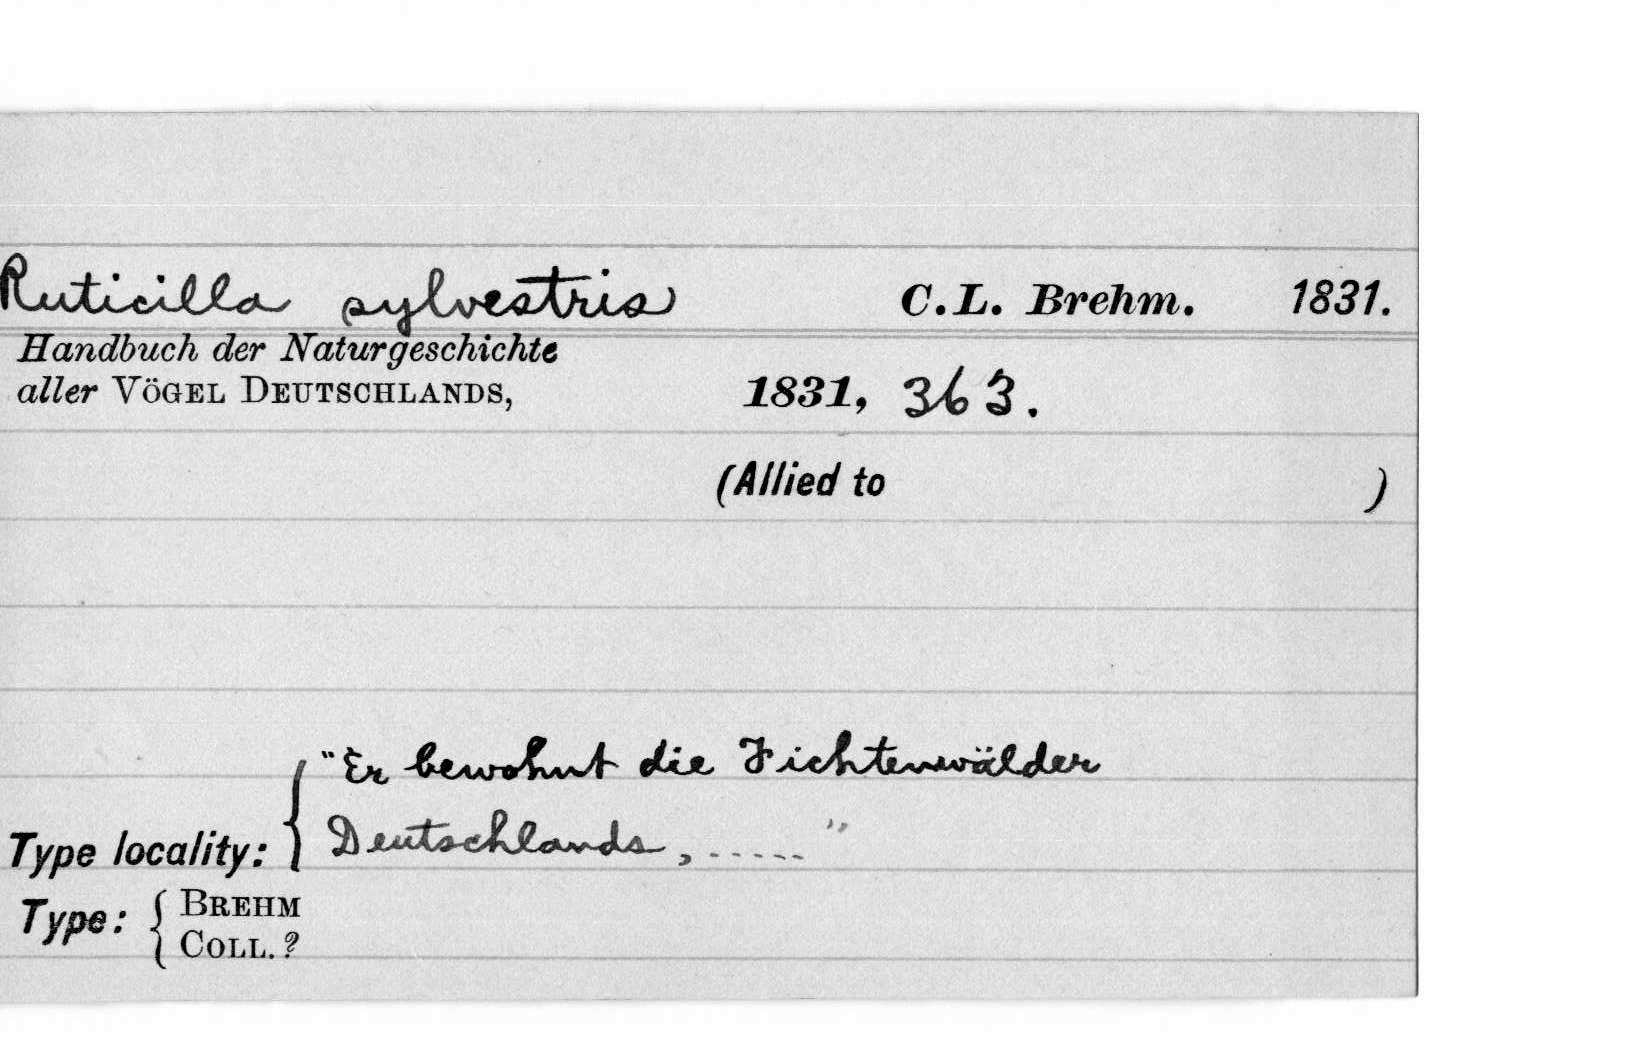 Ruticilla sylvestris C.L. Brehm. 1831.
Handbuch der Naturgeschichte
aller VÖGEL DEUTSCHLANDS, 1831, 363.
(Allied to )
"Er bewohnt die Fichtenwälder
Type locality: { Deutschlands, ......"
Type: { BREHM
COLL. ?